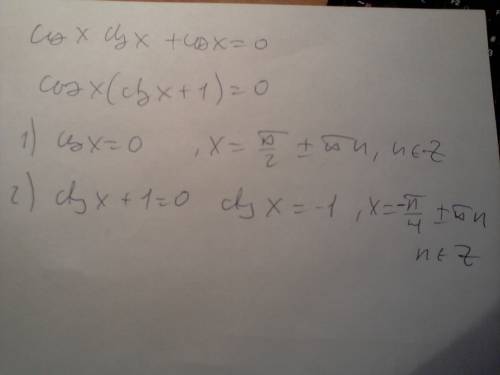 cos x ctg x + cos x = 0
cos x (ctg x + 1) = 0
1) cos x = 0 , x = π/2 ± πn, n ∈ Z
2) ctg x + 1 = 0 ctg x = -1 , x = -π/4 ± πn
n ∈ Z